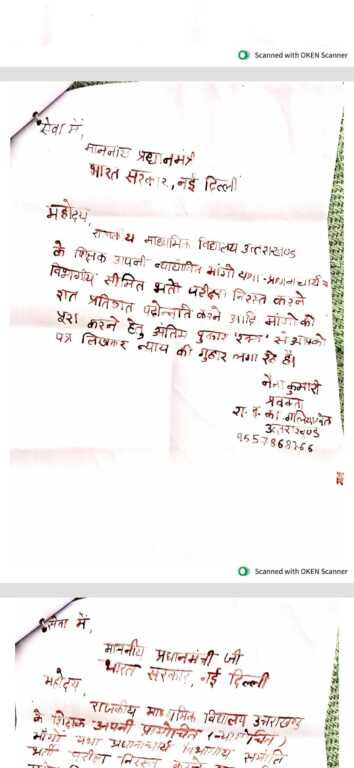 Scanned with OKEN Scanner
सेवा में,
माननीय प्रधानमंत्री
भारत सरकार, नई दिल्ली
महोदय,
राजकीय माध्यमिक विद्यालय उत्तराखण्ड
के शिक्षक अपनी न्यायोचित मांगो यथा-प्रधानाचार्य
विभागीय सीमित भर्ती परीक्षा निरस्त करने
शत प्रतिशत पदोन्नति करने आदि मांगो को
पूरा करने हेतु अंतिम पुकार 'रक्त' से आपको
पत्र लिखकर न्याय की गुहार लगा रहे है।
नैना कुमारी
प्रवक्ता
रा. इ. का.
उत्तराखण्ड
Scanned with OKEN Scanner
सेवा में,
माननीय प्रधानमंत्री जी
भारत सरकार, नई दिल्ली
महोदय,
राजकीय माध्यमिक विद्यालय उत्तराखण्ड
के शिक्षक अपनी (न्यायोचित)
मांगो यथा प्रधानाचार्य
भर्ती परीक्षा निरस्त करने